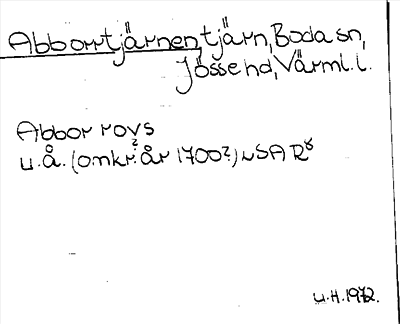 Abborrtjärnen, tjärn, Boda sn,
Jösse hd, Värml. l.
Abbor rovs
u.å. (omkr. år 1700?) ~ SAR
U.H. 1972.